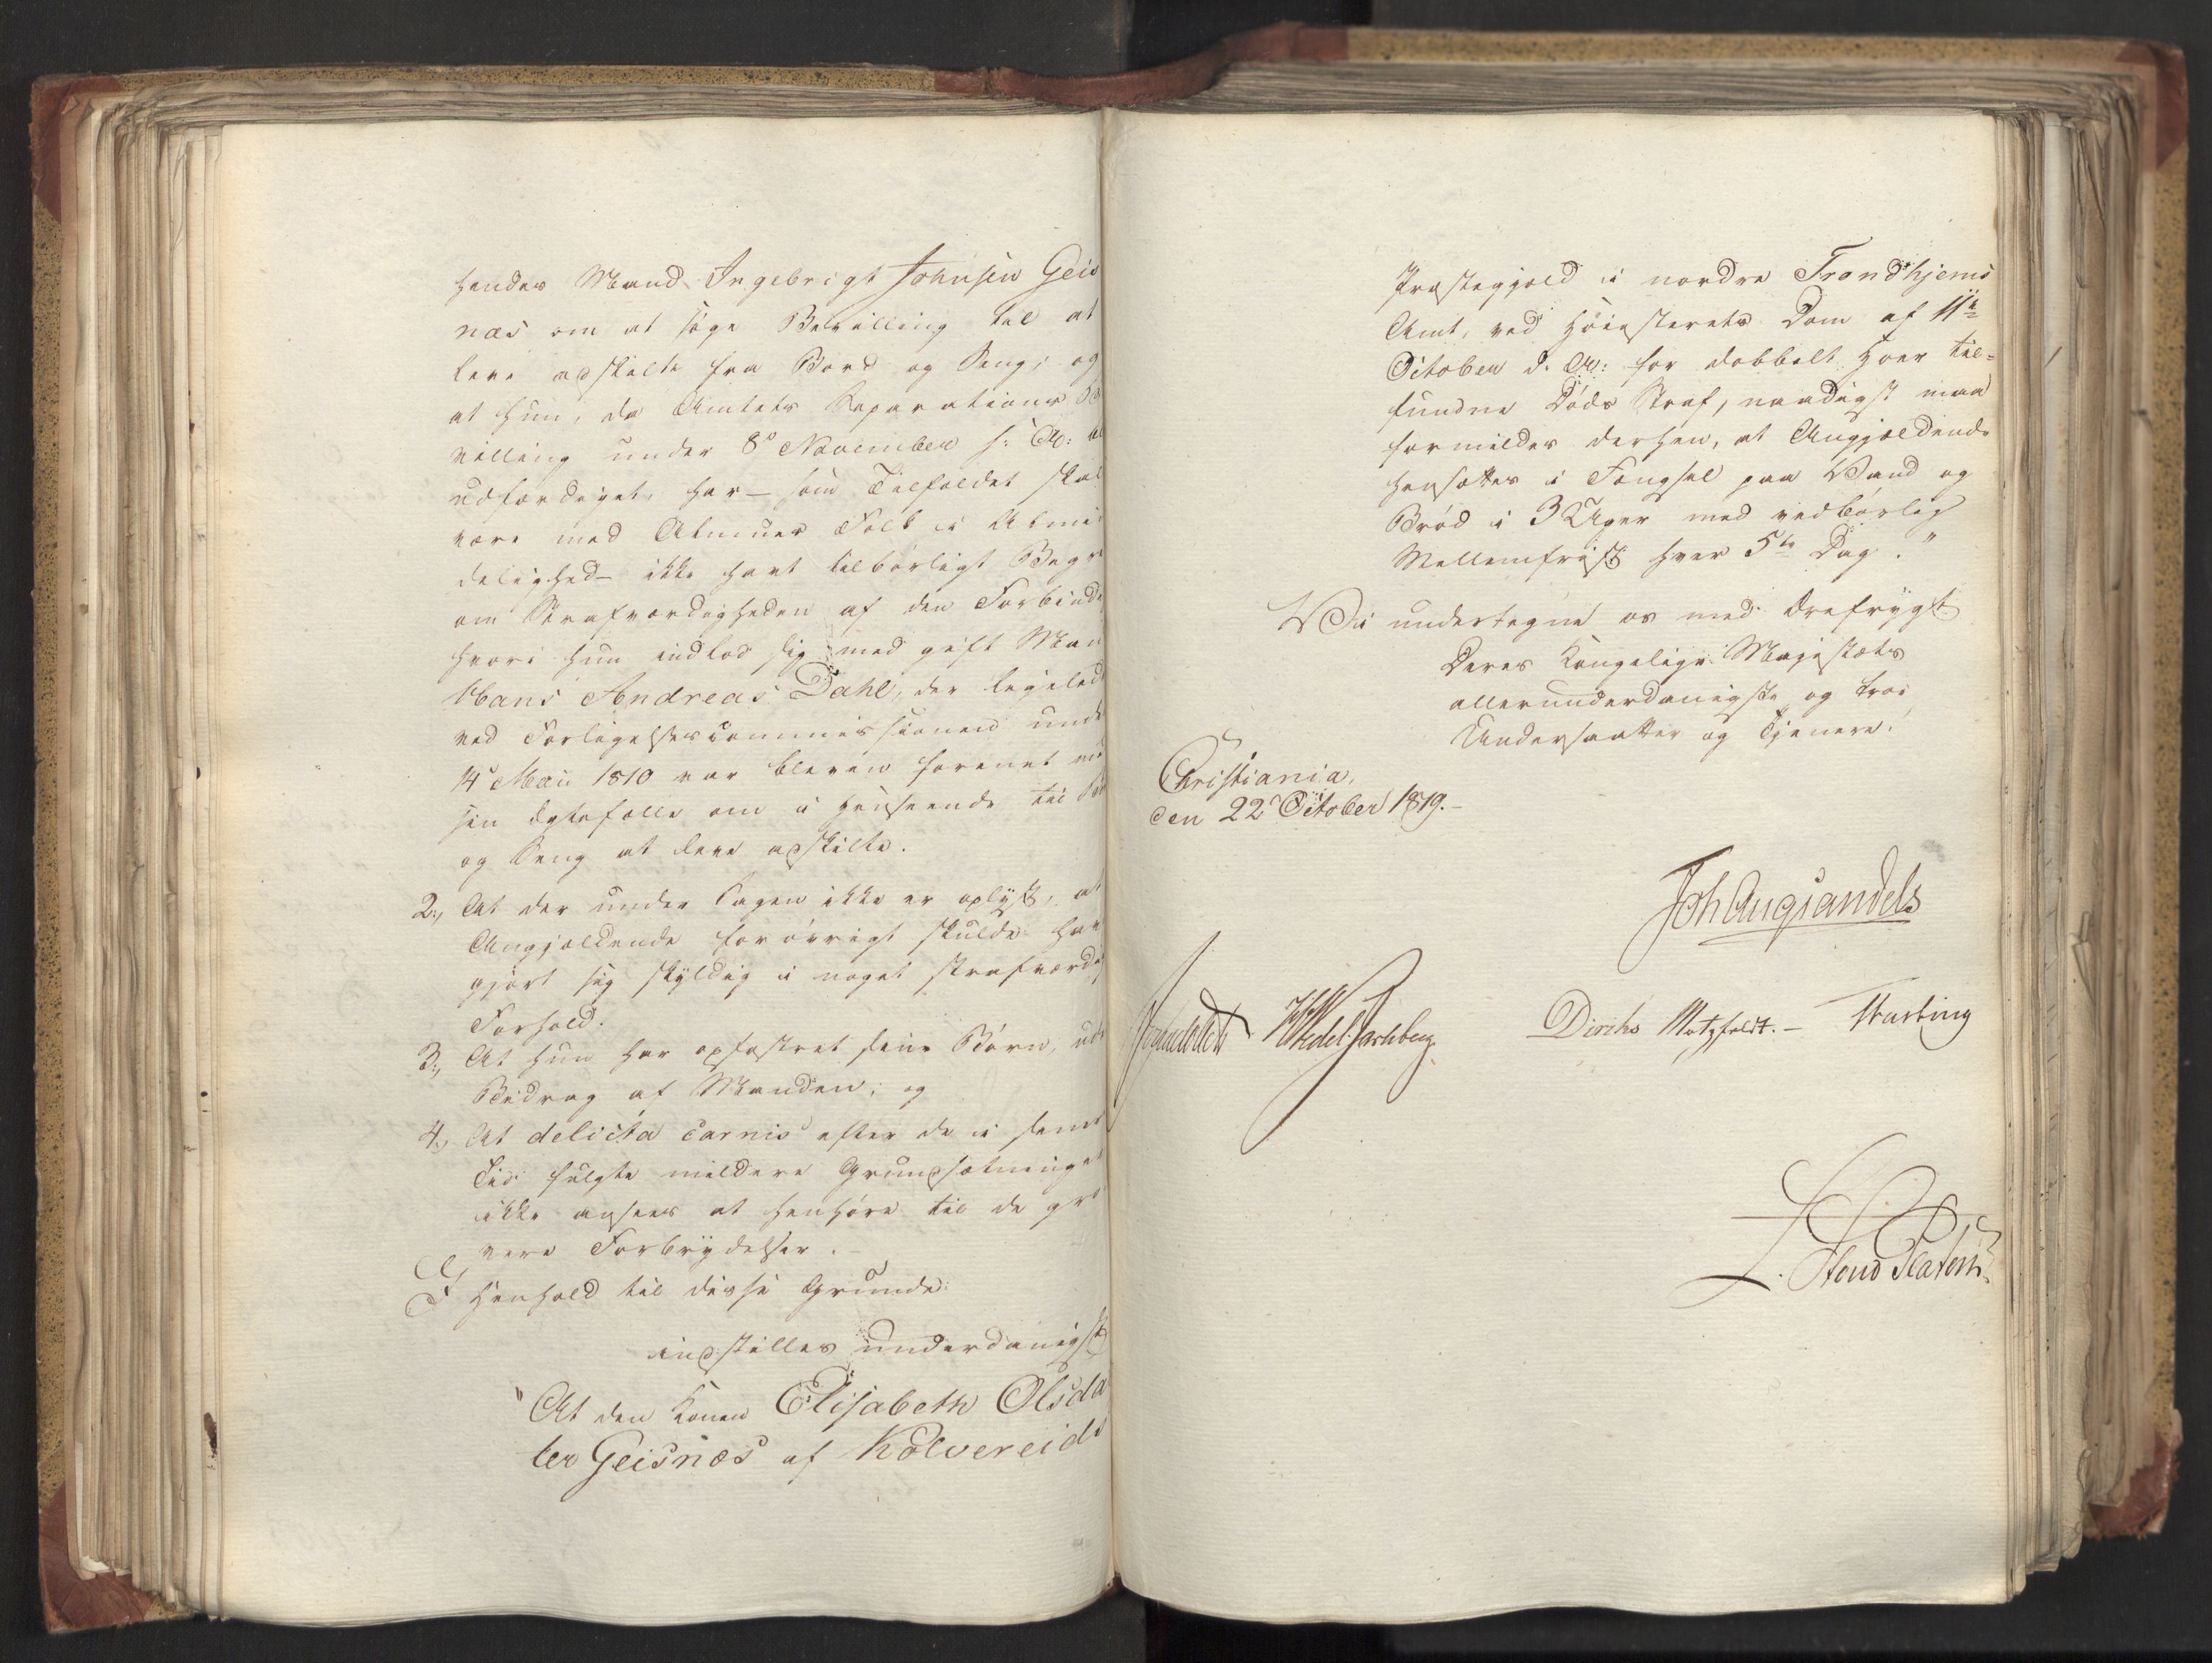 hendes Mand Ingebrigt Johnsen Geis
næs om at søge Bevilling til at
leve adskilte fra Bord og Seng; og
at hun, da Amtets Separations Be
villing under 8de November s: A:
udfærdiget, har – som Tilfældet skal
være med Almues Folk i Almin
delighed – ikke havt tilbørligt Begre
om Strafværdigheden af den Forbinde
hvori hun indlod sig med gift Man
Hans Andreas Dahl, der ligeled
ved Forligelsescommissionen unde
14de Maii 1810 var bleven forenet med
sin Ægtefælle om i Henseende til Bor
og Seng at leve adskilte.
2., At der under Sagen ikke er oplyst, at
Angjældende forøvrigt skulde have
gjort sig skyldig i noget strafværdig
Forhold.
3., At hun har opfostret sine Børn, uden
Bidrag af Manden; og
4., At delicta carnis efter de i senere
Tid fulgte mildere Grundsætninger
ikke ansees at henhøre til de gro
vere Forbrydelser. –
I Henhold til disse Grunde
indstilles underdanigst
"At den Konen Elisabeth Olsda
ter Geisnæs af Kolvereids
Præstegjeld i nordre Trondhjems
Amt, ved Høiesterets Dom af 11te
October d. A: for dobbelt Hoer til-
fundne Døds Straf, naadigst maa
formildes derhen, at Angjældende
hensættes i Fængsel paa Vand og
Brød i 3 Uger med vedbørlig
Mellemfrist hver 5te Dag."
Vi undertegne os med Ærefrygt
Deres Kongelige Majestæts
allerunderdanigste og troe
Undersaatter og Tjenere.
Christiania,
den 22 October 1819. –
Joh Aug Sandels
Sommerhielm HWedel Jarlsberg Diriks Motzfeldt. – Krasting
L. v. Stend Platou